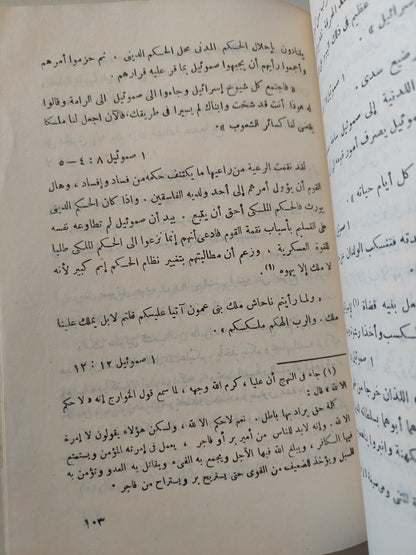 ينادون بإحلال الحكم المدنى محل الحكم الدينى . ثم حزموا أمرهم
وأجمعوا رأيهم أن يجبهوا صموئيل بما قر عليه قرارهم .
« فاجتمع كل شيوخ إسرائيل وجاءوا الى صموئيل الى الرامة وقالوا
له هوذا أنت قد شخت وابناك لم يسيرا فى طريقك ، فالآن اجعل لنا ملكا
يقضى لنا كسائر الشعوب » .
١ صموئيل ٨ : ٤ – ٥
لقد نقمت الرعية من راعيها ما يكتنف حكمه من فساد وإفساد ، وهال
القوم أن يؤول أمرهم إلى أحد ولديه الفاسقين . واذا كان الحكم الدينى
يورث فالحكم الملكى أحق أن يتبع . بيد أن صموئيل لم تطاوعه نفسه
على التسليم بأسباب نقمة القوم فادعى أنهم إنما نزعوا الى الحكم الملكى طلبا
للقوة العسكرية . وزعم أن مطالبتهم بتغيير نظام الحكم إثم كبير لأنه
لا ملك إلا يهوه (١) .
« ولما رأيتم ناحاش ملك بنى عمون آتيا عليكم قلتم لا بل يملك علينا
ملك . والرب الهكم ملككم » .
١ صموئيل ١٢ : ١٢
(١) جاء فى النهج أن عليا ، كرم الله وجهه ، لما سمع قول الخوارج إنه « لا حكم
الا لله » قال :
كلمة حق يراد بها باطل . نعم لا حكم الا لله ، ولكن هؤلاء يقولون لا إمرة
الا لله . وإنه لابد للناس من أمير بر أو فاجر ، يعمل فى إمرته المؤمن ويستمتع
فيها الكافر ، ويبلغ الله فيها الأجل ويجمع به الفىء ويقاتل به العدو وتؤمن به
السبل ويؤخذ للضعيف من القوى حتى يستريح بر ويستراح من فاجر .
١٠٣
عظيم فى
إسرائيل » .
١ صمو
وضع سدى .
اللدنية الى صموئيل
صموئيل يصرف أمور
كل أيام حياته » .
١ ص
بنيه قضاة
١ صموئيل
اللذان خرجا من